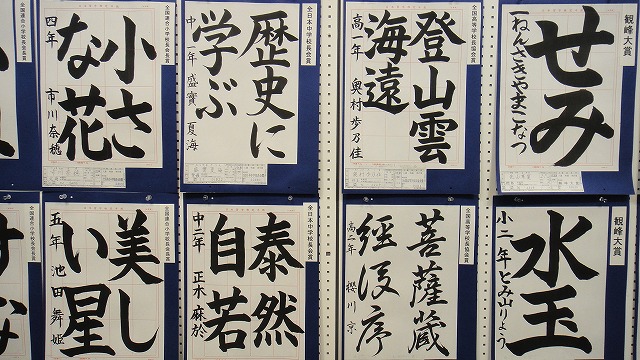 観峰大賞
せみ
ねんさきやまこなつ
全国高等学校長協会賞
登山雲
海遠
高一年 奥村歩乃佳
全日本中学校長会賞
歴史に
学ぶ
中一年 盛實夏海
全国連合小学校長会長賞
小さ
な花
四年 市川奈穂
観峰大賞
水玉
小二年とみ山りょう
全国高等学校長協会賞
菩薩蔵
経後序
高二年 櫻川京
全日本中学校長会賞
泰然
自若
中二年 正木麻於
全国連合小学校長会長賞
美し
い星
五年 池田舞姫